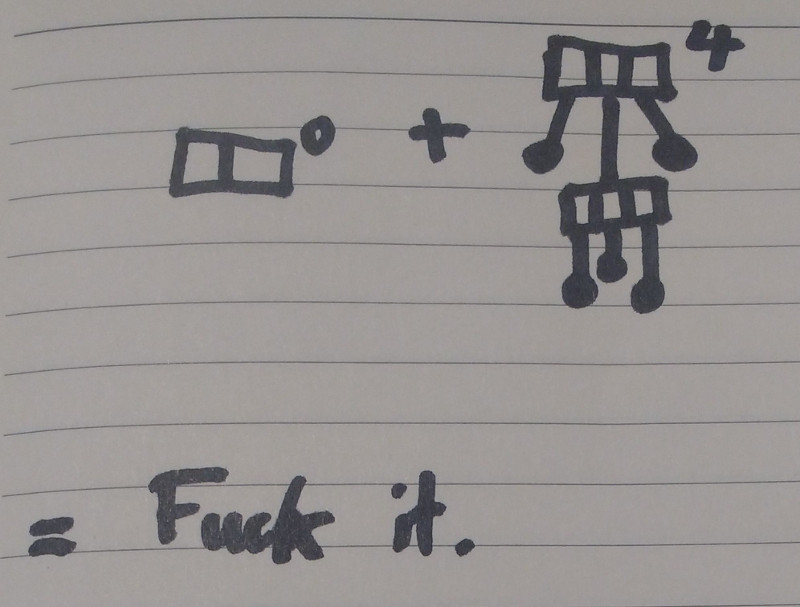 0 + 4
= Fuck it.